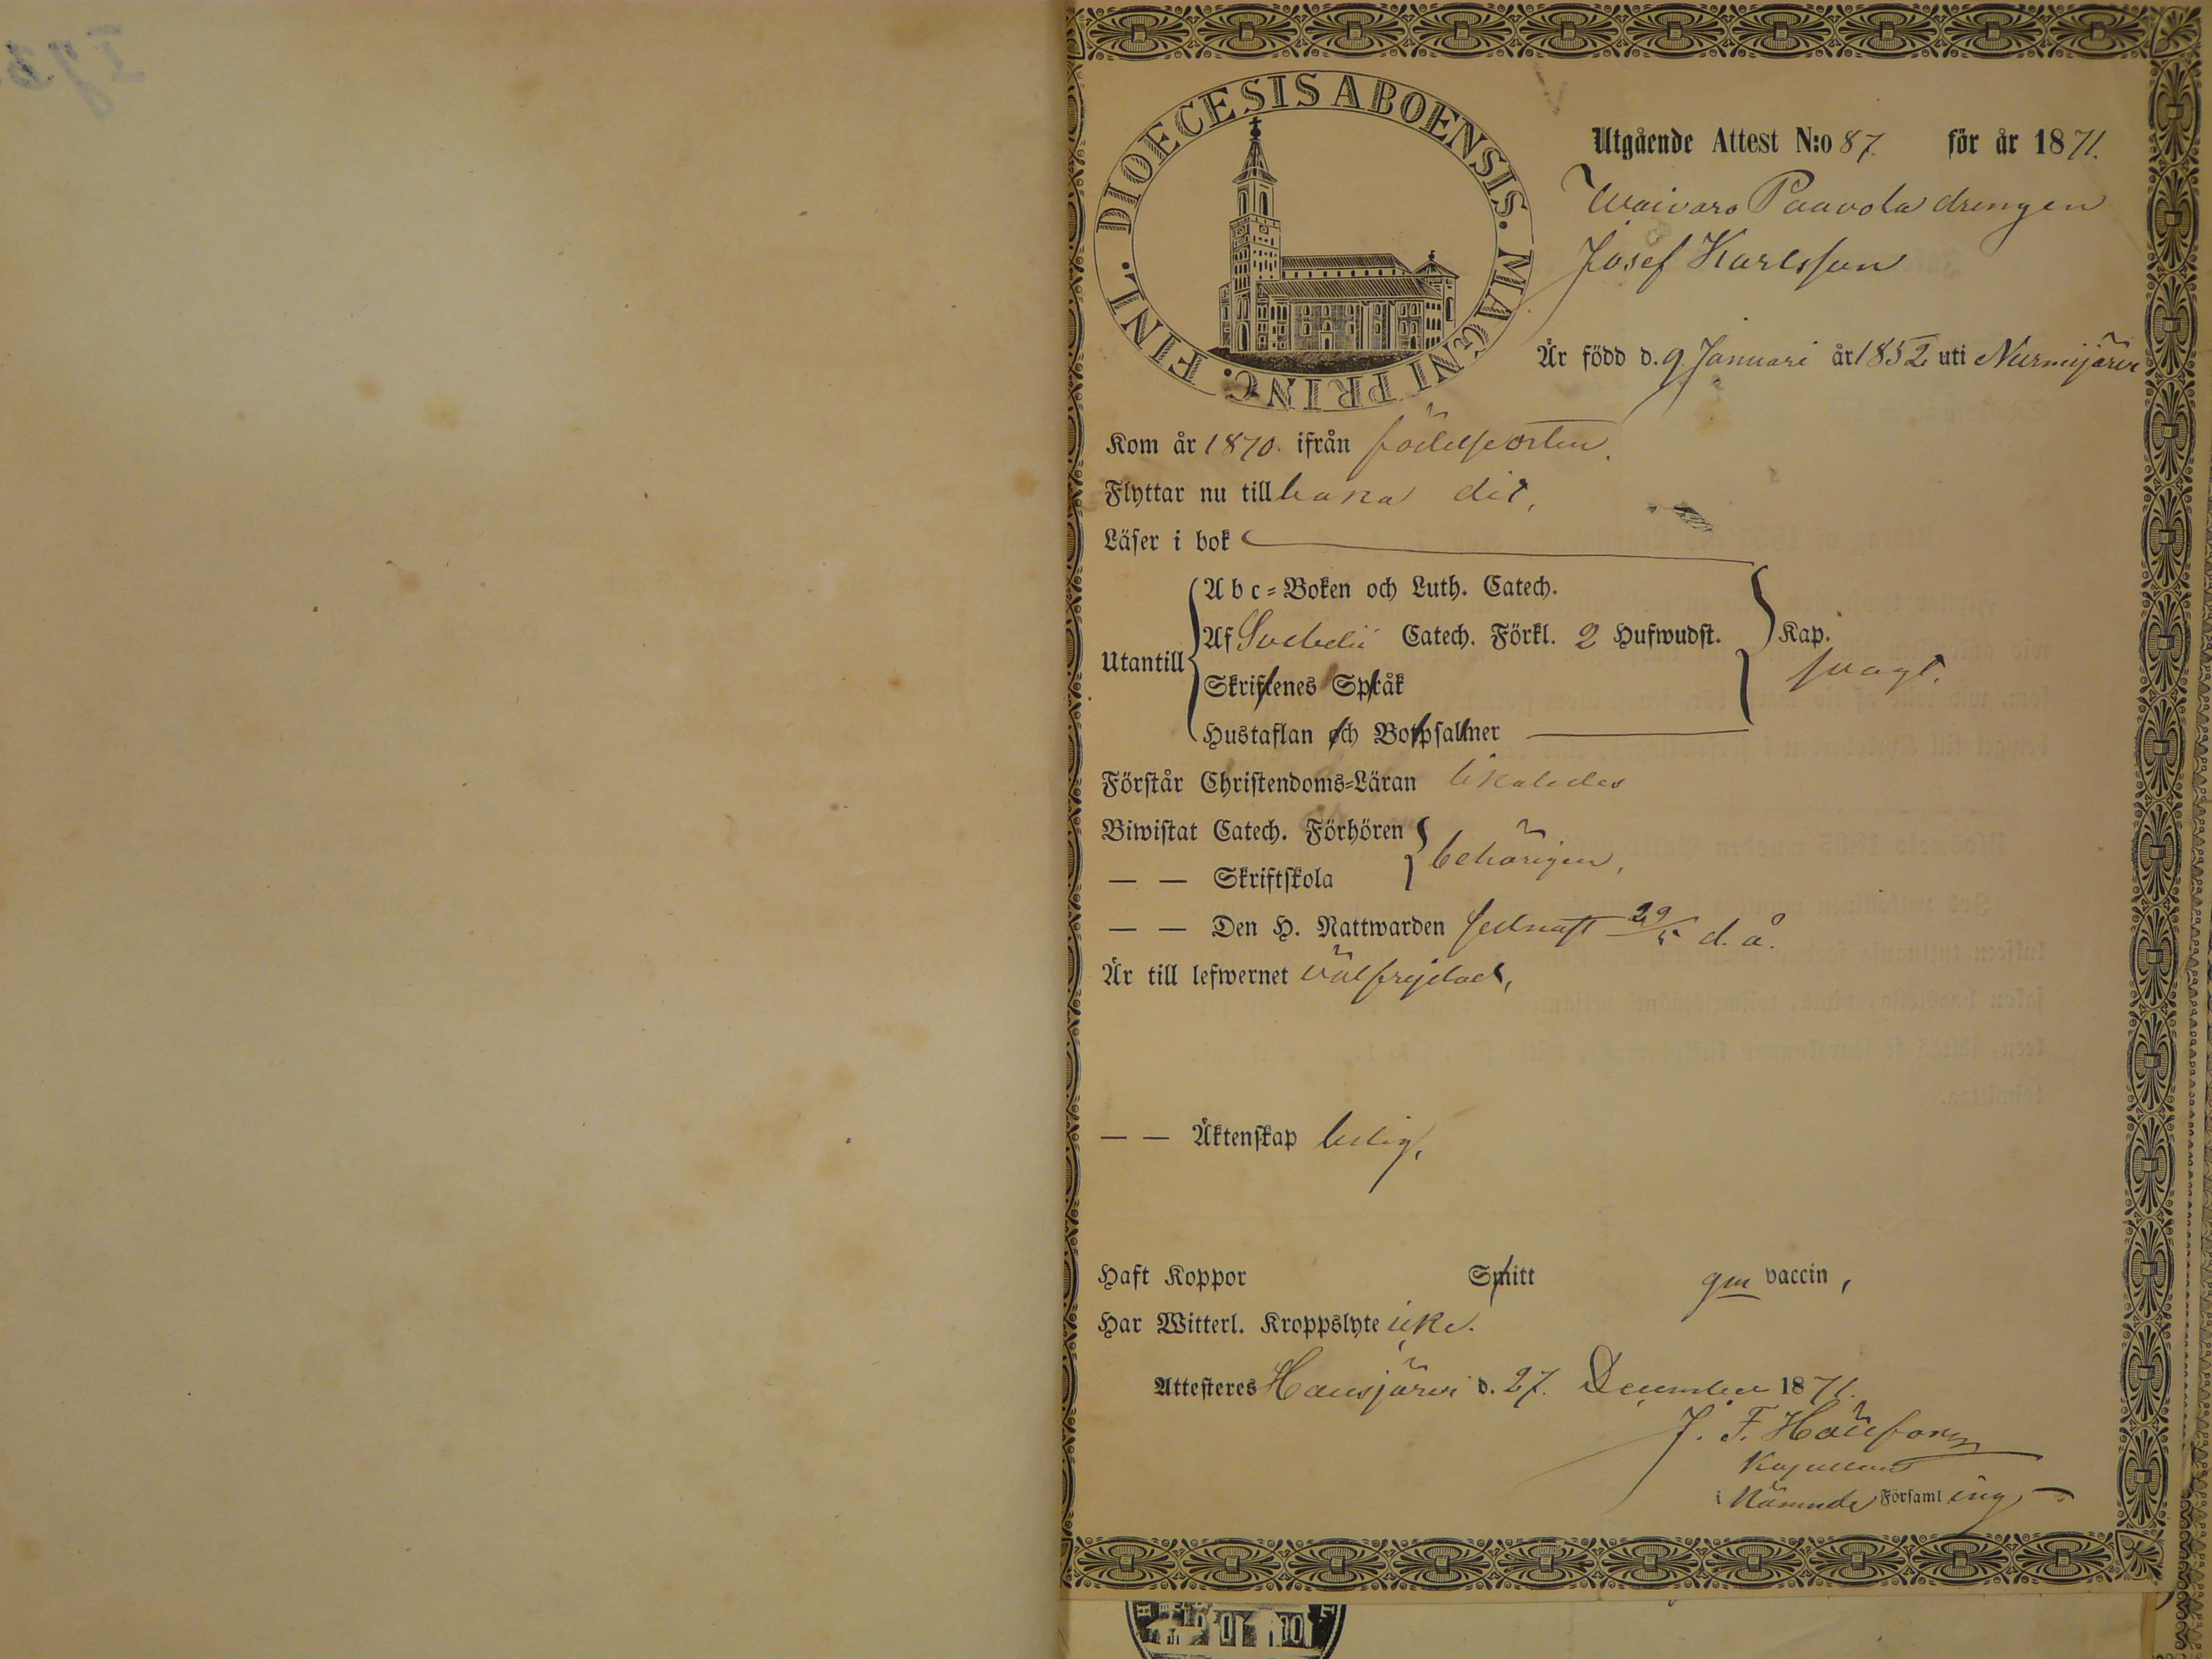 DIOECESIS ABOENSIS. MAGNI PRINC. FINL.
Utgående Attest N:o 87. för år 1871.
Waivaro Paavola drengen
Josef Karlsson
Är född d. 9 Januari år 1852 uti Nurmijärvi
Kom år 1870. ifrån födelseorten.
Flyttar nu tillbaka dit,
Läser i bok
Utantill
Abc-Boken och Luth. Catech.
Af Svebelii Catech. Förkl. 2 Hufwudst.
Skriftenes Språk
Hustaflan och Botpsalmer
Kap.
svagt.
Förstår Christendoms-Läran likaledes
Biwistat Catech. Förhören
— — Skriftskola
behörigen,
— — Den H. Nattwarden sednast 29/5 d. å.
Är till lefwernet välfrejdad,
— — Äktenskap ledig,
Haft Koppor Smitt gm vaccin,
Har Witterl. Kroppslyte icke.
Attesteres Hausjärvi d. 27. December 1871.
J. F.
Kapellan
i Nämnde Församling